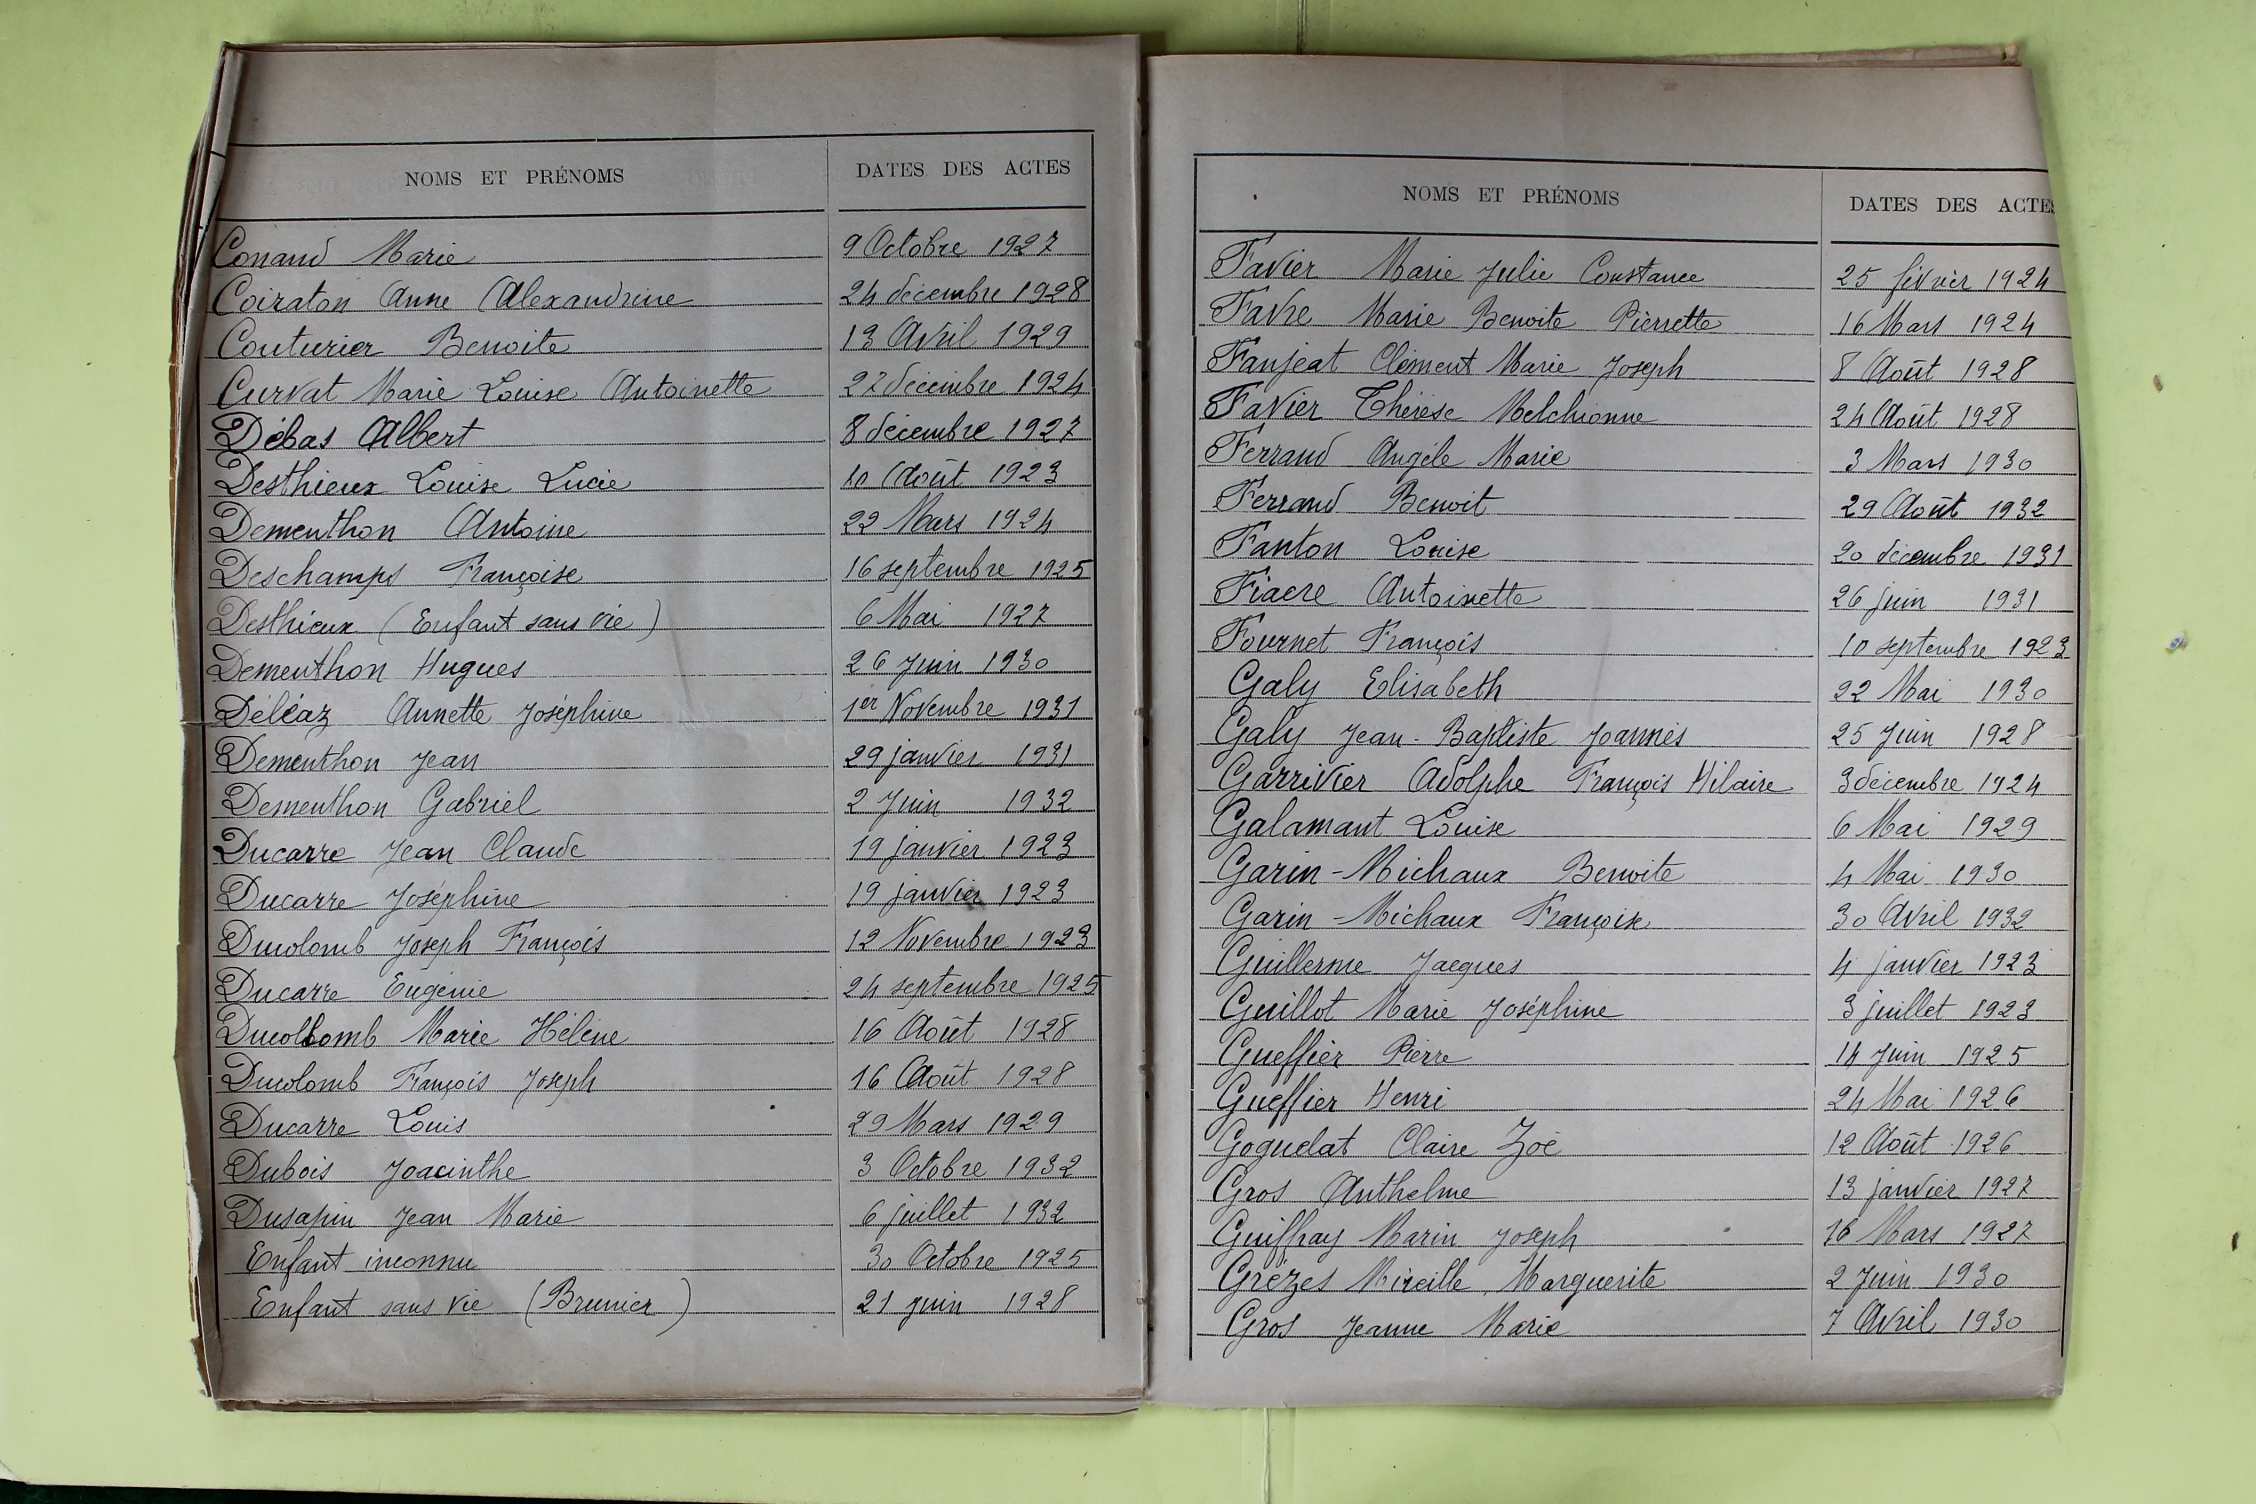 NOMS ET PRÉNOMS DATES DES ACTES
Conand Marie 9 Octobre 1927
Coiraton Anne Alexandrine 24 décembre 1928
Couturier Benoite 13 Avril 1929
Curvat Marie Louise Antoinette 27 décembre 1924
Débas Albert 8 décembre 1927
Desthieux Louise Lucie 10 Août 1923
Dementhon Antoine 22 Mars 1924
Deschamps Françoise 16 septembre 1925
Desthieux (Enfant sans vie) 6 Mai 1927
Dementhon Hugues 26 Juin 1930
Déléaz Annette Joséphine 1er Novembre 1931
Dementhon Jean 29 janvier 1931
Dementhon Gabriel 2 Juin 1932
Ducarre Jean Claude 19 janvier 1923
Ducarre Joséphine 19 janvier 1923
Ducolomb Joseph François 12 Novembre 1923
Ducarre Eugénie 24 septembre 1925
Ducollomb Marie Hélène 16 Août 1928
Ducolomb François Joseph 16 Août 1928
Ducarre Louis 29 Mars 1929
Dubois Joacinthe 3 Octobre 1932
Dusapin Jean Marie 6 juillet 1932
Enfant inconnu 30 Octobre 1925
Enfant sans vie (Brunier) 21 juin 1928
NOMS ET PRÉNOMS DATES DES ACTES
Favier Marie Julie Constance 25 février 1924
Favre Marie Benoite Pierrette 16 Mars 1924
Fanjeat Clément Marie Joseph 8 Août 1928
Favier Thérèse Melchionne 24 Août 1928
Ferrand Angèle Marie 3 Mars 1930
Ferrand Benoit 29 Août 1932
Fanton Louise 20 décembre 1931
Fiacre Antoinette 26 juin 1931
Fournet François 10 septembre 1923
Galy Elisabeth 22 Mai 1930
Galy Jean-Baptiste Joannès 25 Juin 1928
Garrivier Adolphe François Hilaire 3 décembre 1924
Galamant Louise 6 Mai 1929
Garin-Michaux Benoite 4 Mai 1930
Garin-Michaux Françoise 30 Avril 1932
Guillerme Jacques 4 janvier 1923
Guillot Marie Joséphine 3 juillet 1923
Gueffier Pierre 14 Juin 1925
Gueffier Henri 24 Mai 1926
Goguelat Claire Zoé 12 Août 1926
Gros Anthelme 13 janvier 1927
Guiffray Marin Joseph 16 Mars 1927
Grèzes Mireille Marguerite 2 Juin 1930
Gros Jeanne Marie 7 Avril 1930